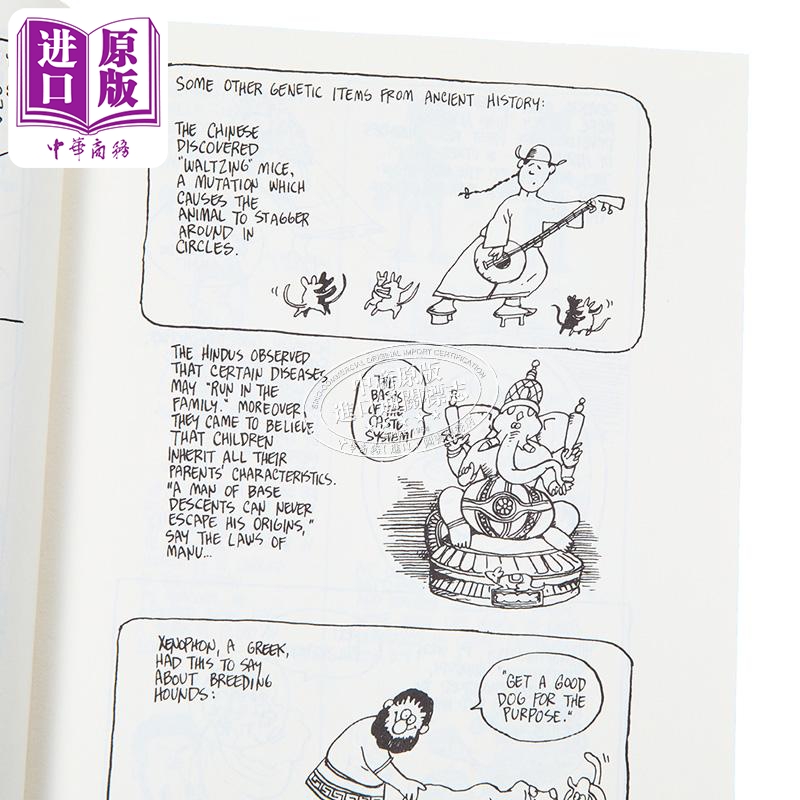 进口
原版
中華商務
SOME OTHER GENETIC ITEMS FROM ANCIENT HISTORY:
THE CHINESE
DISCOVERED
"WALTZING" MICE,
A MUTATION WHICH
CAUSES THE
ANIMAL TO STAGGER
AROUND IN
CIRCLES.
THE HINDUS OBSERVED
THAT CERTAIN DISEASES
MAY "RUN IN THE
FAMILY." MOREOVER,
THEY CAME TO BELIEVE
THAT CHILDREN
INHERIT ALL THEIR
PARENTS' CHARACTERISTICS.
"A MAN OF BASE
DESCENTS CAN NEVER
ESCAPE HIS ORIGINS,"
SAY THE LAWS OF
MANU...
THE
BASIS
OF THE
CASTE
SYSTEM!
XENOPHON, A GREEK,
HAD THIS TO SAY
ABOUT BREEDING
HOUNDS:
"GET A GOOD
DOG FOR THE
PURPOSE."